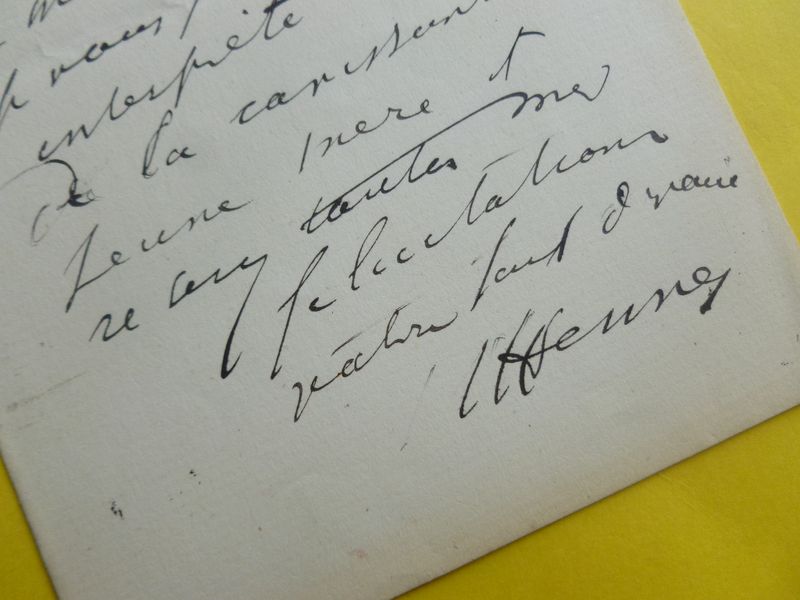 vous
interprète
de la ravissante
jeune mere et
recevez toutes mes
félicitations
votre tout dévoué
Henner